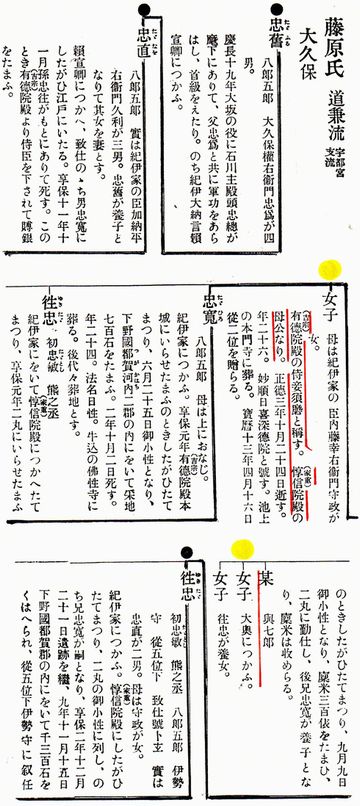 藤原氏 道兼流 宇都宮支流
大久保
忠舊
たゞふる
八郎五郎 大久保權右衛門忠爲が四
男。
慶長十九年大坂の役に石川主殿頭忠總が
麾下にありて、父忠爲と共に軍功をあら
はし、首級をえたり。のち紀伊大納言頼
宣卿につかふ。
忠直
たゞなを
八郎五郎 實は紀伊家の臣加納平
右衛門久利が三男。忠舊が養子と
なりて其女を妻とす。
頼宣卿につかへ、致仕のゝち男忠寛に
したがひ江戸にいたる。享保十一年十
一月孫忠往がもとにありて死す。この
とき有德院殿より侍臣を下されて賻銀
(吉宗)
をたまふ。
女子
母は紀伊家の臣内藤幸右衛門守政が
女。
有德院殿の侍妾須磨と稱す。惇信院殿の
(吉宗)
(家重)
母公なり。正德三年十月二十四日逝す。
年二十六。妙順日喜深德院と號す。池上
の本門寺に葬る。寶曆十三年四月十六日
從二位を贈らる。
忠寛
たゞひろ
八郎五郎 母は上におなじ。
紀伊家につかふ。享保元年有德院殿本
(吉宗)
城にいらせたまふのときしたがひたて
まつり、六月二十五日御小性となり、
下野國都賀河内二郡の内にをいて采地
七百石をたまふ。二年十月二日死す。
年二十四。法名日性。牛込の佛性寺に
葬る。後代々葬地とす。
往忠
ゆきたゞ
初忠敏 熊之丞
紀伊家にをいて惇信院殿につかへたて
(家重)
まつり、享保元年二丸にいらせたまふ
のときしたがひたてまつり、九月九日
御小性となり、廩米三百俵をたまひ、
二丸に勤仕し、後兄忠寛が養子とな
り、廩米は收めらる。
某
與七郎
女子 大奥につかふ。
女子 往忠が養女。
往忠
ゆきたゞ
初忠敏 熊之丞 八郎五郎 伊勢
守 從五位下 致仕號卜玄 實は
忠直が二男 母は守政が女。
紀伊家につかふ。惇信院殿にしたがひ
(家重)
たてまつり、二丸の御小性に列し、の
ち兄忠寛が嗣となり、享保二年十二月
二十一日遺跡を繼、九年十一月十五日
下野國都賀郡の内にをいて千三百石を
くはへられ、從五位下伊勢守に叙任